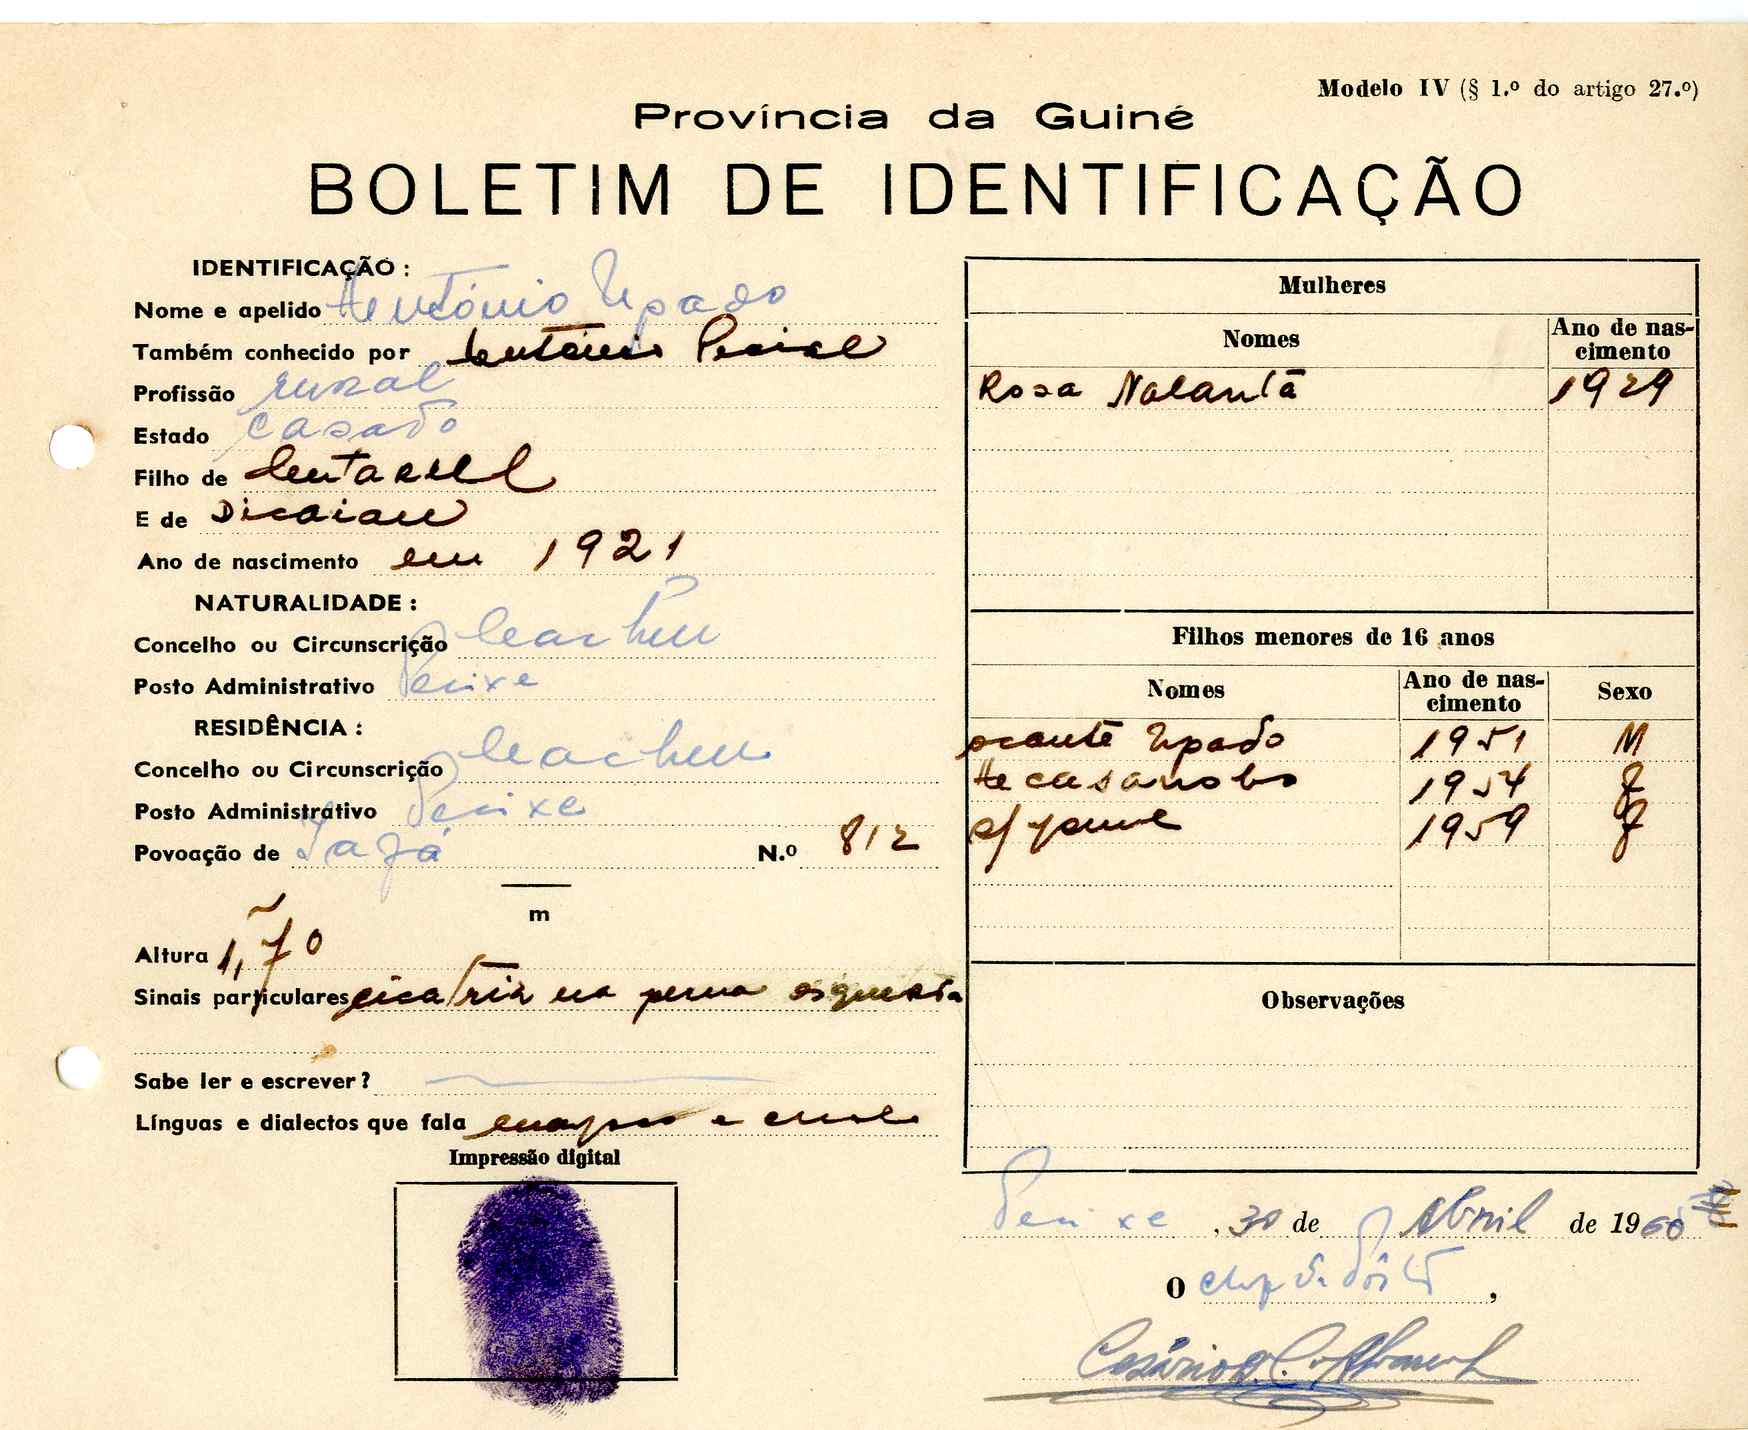 Modelo IV (§ 1.º do artigo 27.º)
Província da Guiné
BOLETIM DE IDENTIFICAÇÃO
IDENTIFICAÇÃO:
Nome e apelido António Upado
Também conhecido por António
Profissão rural
Estado casado
Filho de
E de
Ano de nascimento em 1921
NATURALIDADE:
Concelho ou Circunscrição Cacheu
Posto Administrativo Pecixe
RESIDÊNCIA:
Concelho ou Circunscrição Cacheu
Posto Administrativo Pecixe
Povoação de N.º 812
m
Altura 1,70
Sinais particulares cicatriz na perna esquerda
Sabe ler e escrever?
Línguas e dialectos que fala e
Impressão digital
Mulheres
Nomes
Ano de nas-
cimento
Rosa Nalantã 1929
Filhos menores de 16 anos
Nomes
Ano de nas-
cimento
Sexo
Upado 1951 M
1954 F
1959 F
Observações
Pecixe, 30 de Abril de 1960
O chefe de Pôsto,